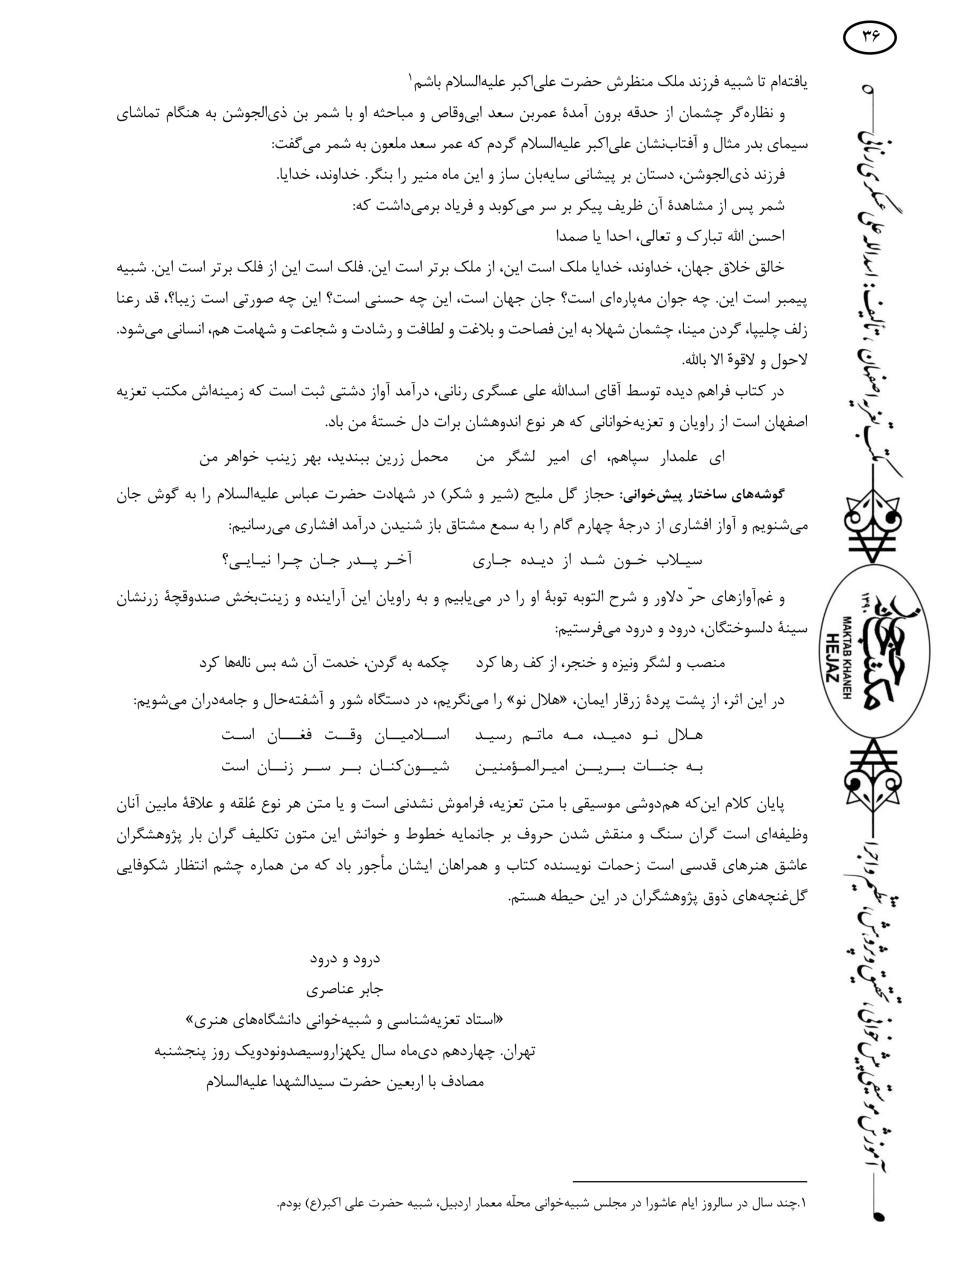 ۳۶
یافته‌ام تا شبیه فرزند ملک منظرش حضرت علی‌اکبر علیه‌السلام باشم۱
و نظاره‌گر چشمان از حدقه برون آمدهٔ عمربن سعد ابی‌وقاص و مباحثه او با شمر بن ذی‌الجوشن به هنگام تماشای
سیمای بدر مثال و آفتاب‌نشان علی‌اکبر علیه‌السلام گردم که عمر سعد ملعون به شمر می‌گفت:
فرزند ذی‌الجوشن، دستان بر پیشانی سایه‌بان ساز و این ماه منیر را بنگر. خداوند، خدایا.
شمر پس از مشاهدهٔ آن ظریف پیکر بر سر می‌کوبد و فریاد برمی‌داشت که:
احسن الله تبارک و تعالی، احدا یا صمدا
خالق خلاق جهان، خداوند، خدایا ملک است این، از ملک برتر است این. فلک است این از فلک برتر است این. شبیه
پیمبر است این. چه جوان مه‌پاره‌ای است؟ جان جهان است، این چه حسنی است؟ این چه صورتی است زیبا؟، قد رعنا
زلف چلیپا، گردن مینا، چشمان شهلا به این فصاحت و بلاغت و لطافت و رشادت و شجاعت و شهامت هم، انسانی می‌شود.
لاحول و لاقوة الا بالله.
در کتاب فراهم دیده توسط آقای اسدالله علی عسگری رنانی، درآمد آواز دشتی ثبت است که زمینه‌اش مکتب تعزیه
اصفهان است از راویان و تعزیه‌خوانانی که هر نوع اندوهشان برات دل خستهٔ من باد.
ای علمدار سپاهم، ای امیر لشگر من محمل زرین ببندید، بهر زینب خواهر من
گوشه‌های ساختار پیش‌خوانی: حجاز گل ملیح (شیر و شکر) در شهادت حضرت عباس علیه‌السلام را به گوش جان
می‌شنویم و آواز افشاری از درجهٔ چهارم گام را به سمع مشتاق باز شنیدن درآمد افشاری می‌رسانیم:
سیـلاب خـون شـد از دیـده جـاری آخـر پـدر جـان چـرا نیـایـی؟
و غم‌آوازهای حرّ دلاور و شرح التوبه توبهٔ او را در می‌یابیم و به راویان این آراینده و زینت‌بخش صندوقچهٔ زرنشان
سینهٔ دلسوختگان، درود و درود می‌فرستیم:
منصب و لشگر ونیزه و خنجر، از کف رها کرد چکمه به گردن، خدمت آن شه بس ناله‌ها کرد
در این اثر، از پشت پردهٔ زرقار ایمان، «هلال نو» را می‌نگریم، در دستگاه شور و آشفته‌حال و جامه‌دران می‌شویم:
هـلال نـو دمیـد، مـه ماتـم رسیـد اسـلامیـان وقـت فغـان اسـت
بـه جنـات بـریـن امیرالمـؤمنیـن شیـون‌کنـان بـر سـر زنـان است
پایان کلام این‌که هم‌دوشی موسیقی با متن تعزیه، فراموش نشدنی است و یا متن هر نوع عُلقه و علاقهٔ مابین آنان
وظیفه‌ای است گران سنگ و منقش شدن حروف بر جانمایه خطوط و خوانش این متون تکلیف گران بار پژوهشگران
عاشق هنرهای قدسی است زحمات نویسنده کتاب و همراهان ایشان مأجور باد که من هماره چشم انتظار شکوفایی
گل‌غنچه‌های ذوق پژوهشگران در این حیطه هستم.
درود و درود
جابر عناصری
«استاد تعزیه‌شناسی و شبیه‌خوانی دانشگاه‌های هنری»
تهران. چهاردهم دی‌ماه سال یکهزاروسیصدونودویک روز پنجشنبه
مصادف با اربعین حضرت سیدالشهدا علیه‌السلام
۱.چند سال در سالروز ایام عاشورا در مجلس شبیه‌خوانی محلّه معمار اردبیل، شبیه حضرت علی اکبر(ع) بودم.
مکتب تعزیه اصفهان، تألیف: اسدالله علی عسکری رنانی
مکتب خانه حجاز
۱۳۹۰
MAKTAB KHANEH
HEJAZ
آموزش موسیقی پیش خوانی، تحقیق و پژوهش، تنظیم و اجرا